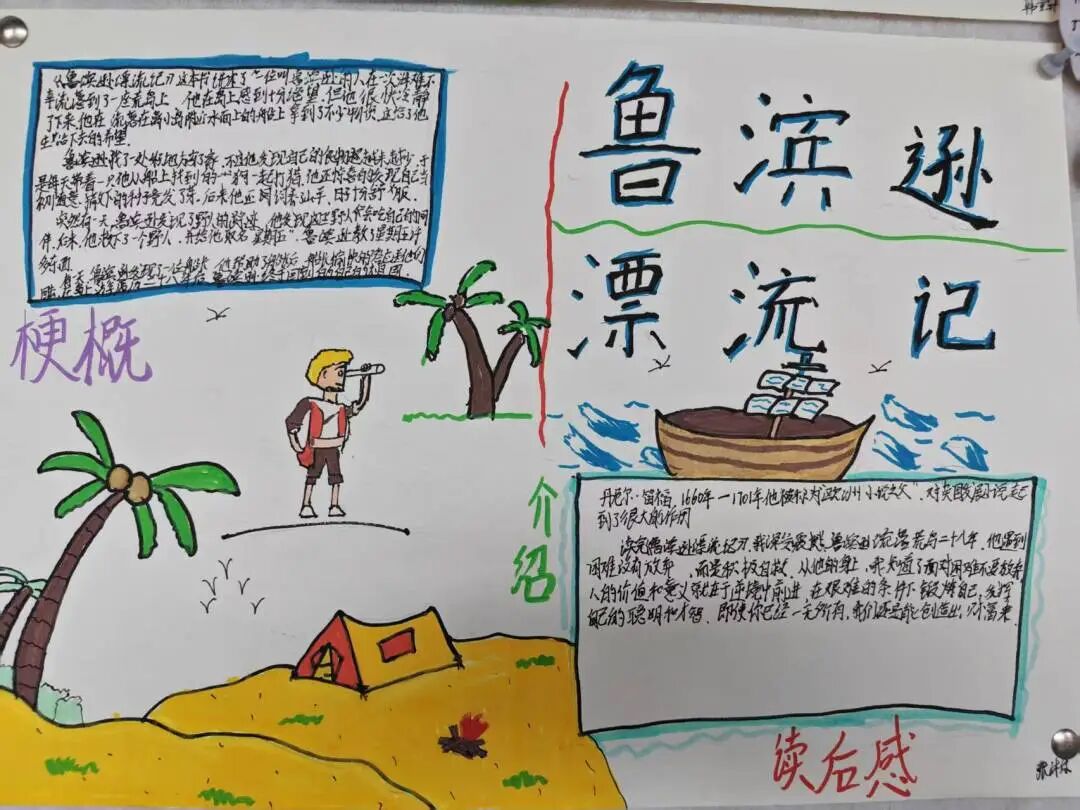 鲁滨逊
漂流记
《鲁滨逊漂流记》这本书讲述了一位叫鲁滨逊的人在一次海难不
幸流落到了一座荒岛上 他在岛上感到十分绝望,但他很快冷静
了下来,他在 流落在离小岛 水面上的船上拿到了不少物资,这给了他
生活下去的希望.
鲁滨逊找了一处好地方安了家,不过他发现自己的食物越来越少,于
是每天带着一只他从船上找到的小狗一起打猎,他还惊喜的发现自己当
初随意 下的种子竟发了芽.后来他还 山羊,日子十分舒服.
突然有一天,鲁滨逊发现了野人的 ,他发现这里野人常会吃自己的同
伴,后来,他救下了一个野人,并给他取名“星期五”.鲁滨逊教了星期五许
多东西
梗概
介绍
丹尼尔·笛福,1660年一1701年他被称为欧洲小说之父”.对英国 小说起
到了很大的作用
读完鲁滨逊漂流记》,我深受 .鲁滨逊流落荒岛二十八年,他遇到
困难没有放弃,而是积极自救.从他的身上,我知道了面对困难不要放弃
人的价值和意义就在于逆境中前进,在艰难的条件下锻炼自己,发挥
自己的聪明和才智.即使你已经一无所有,我们还是能创造出 财富来.
读后感